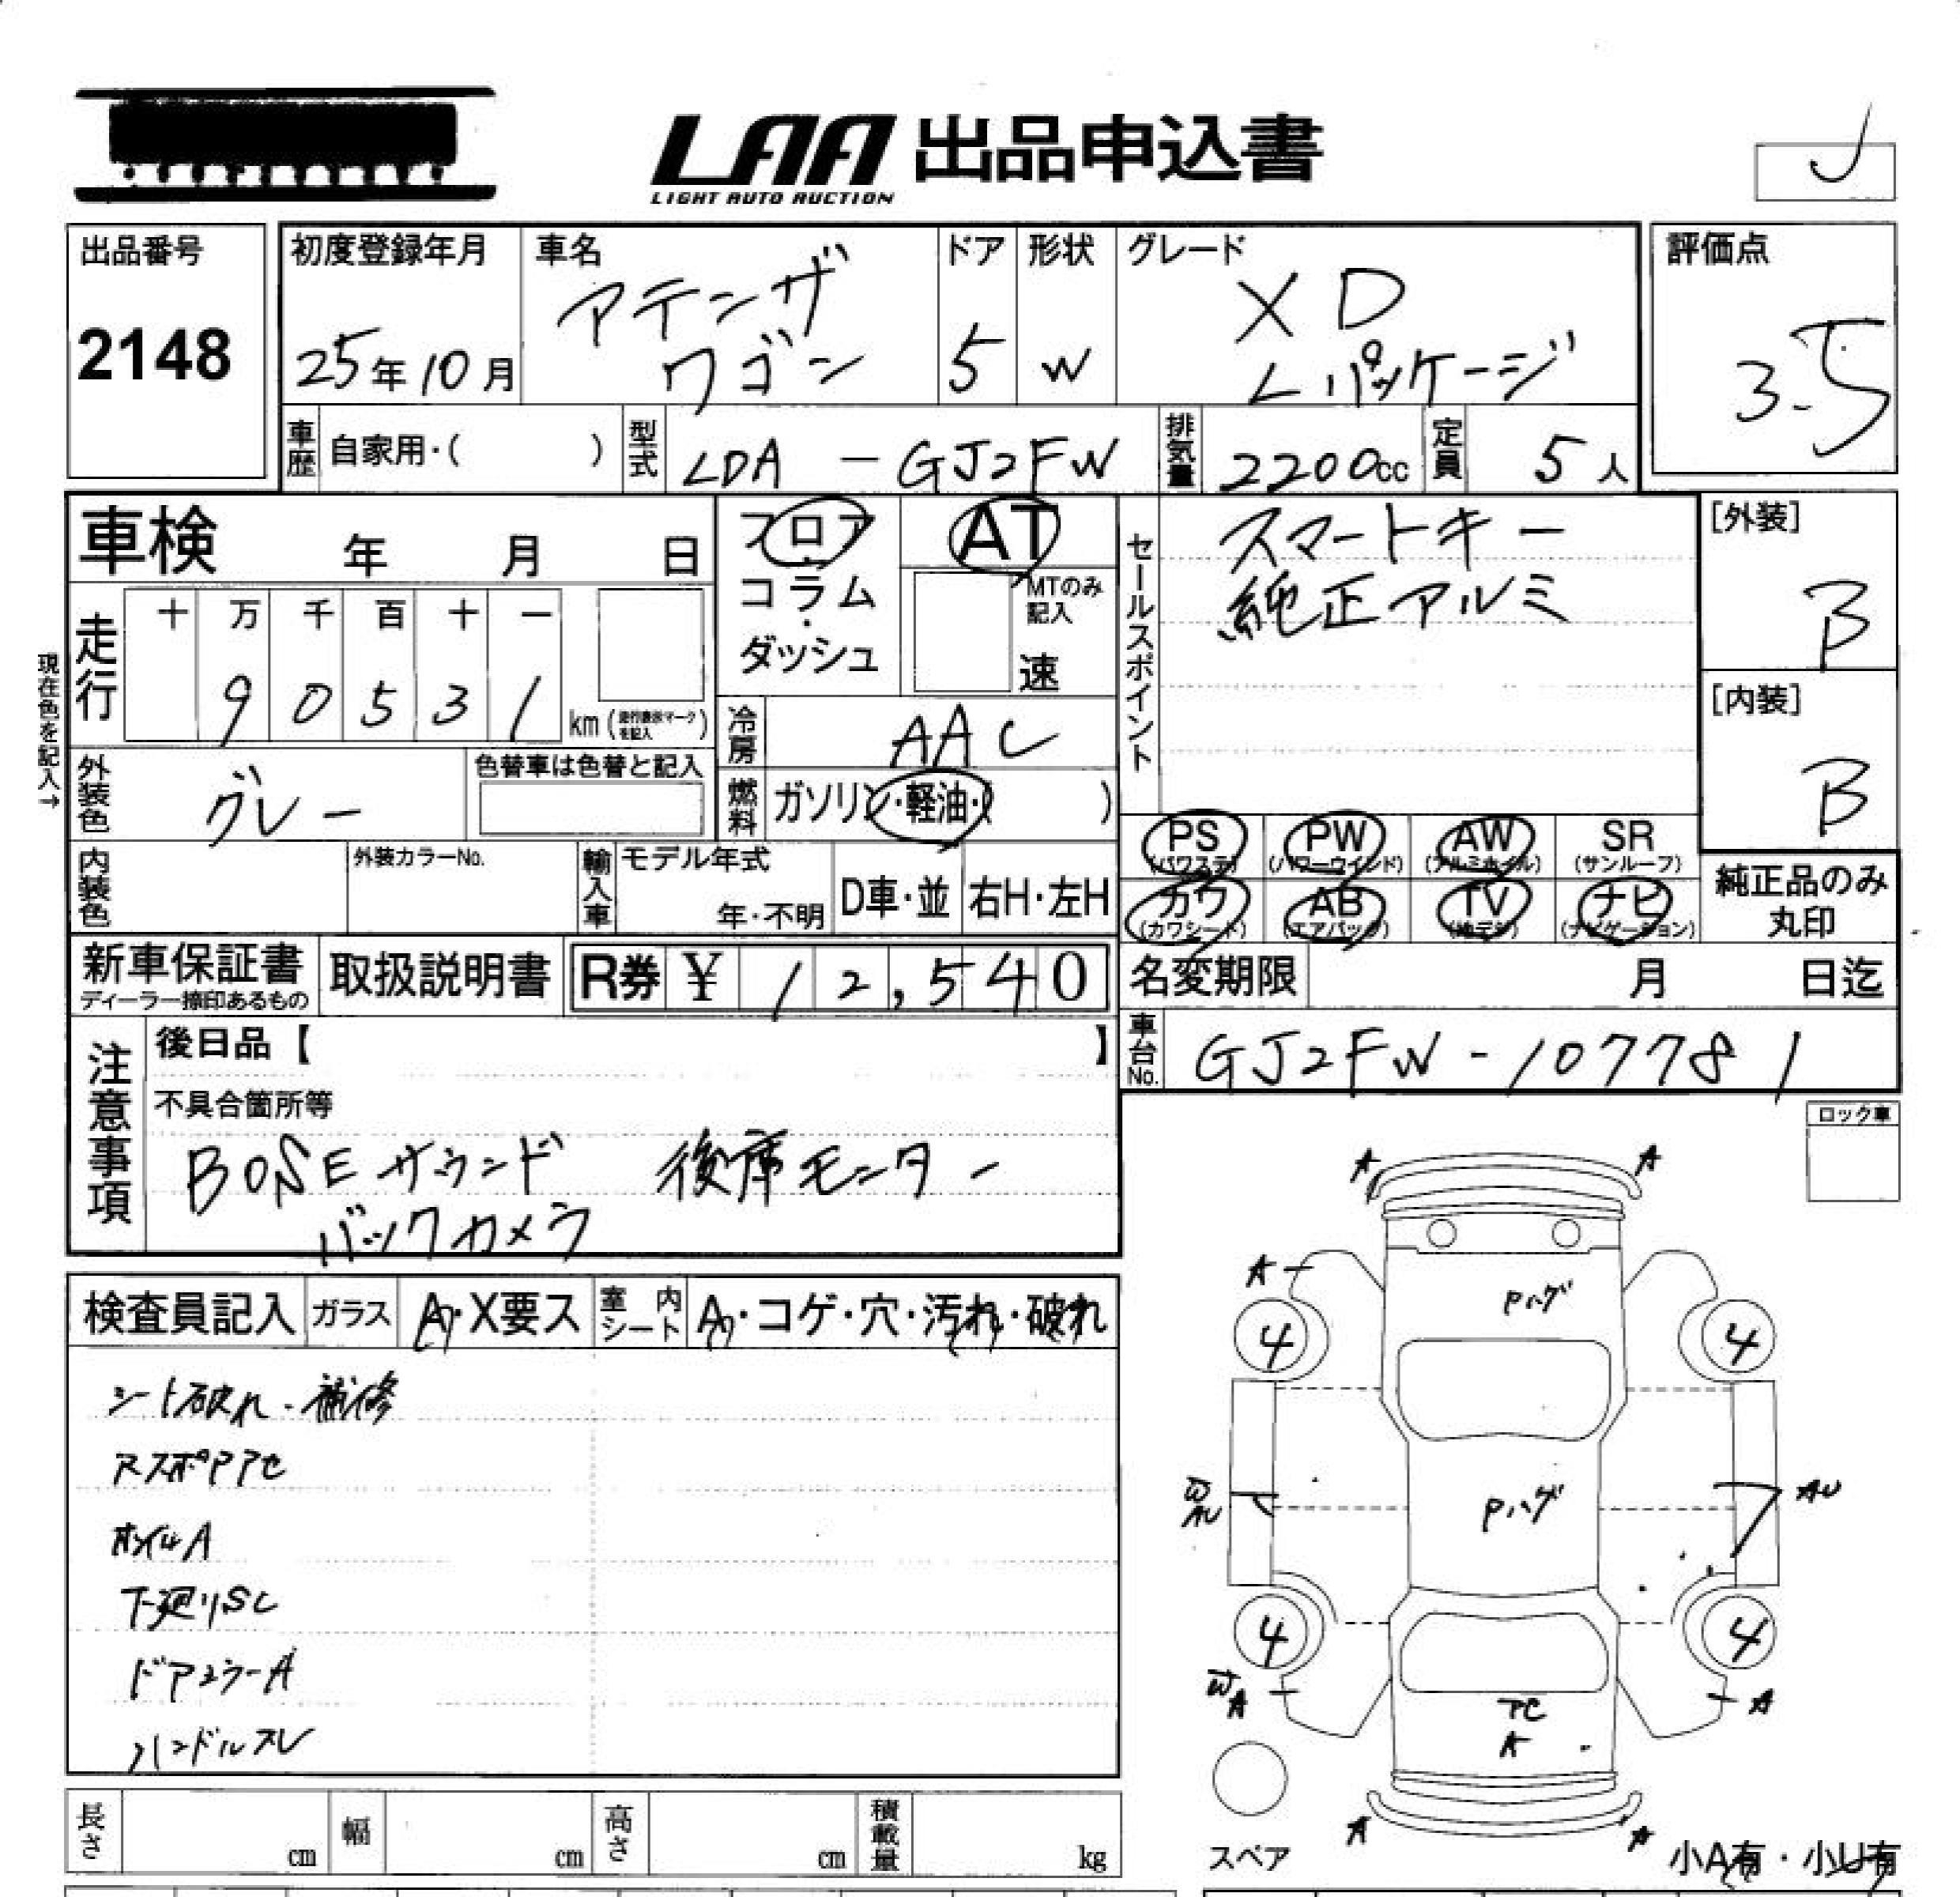 LAA 出品申込書
LIGHT AUTO AUCTION
出品番号
2148
初度登録年月
25年10月
車名
アテンザ
ワゴン
ドア
5
形状
W
グレード
XD
Lパッケージ
評価点
3.5
車歴 自家用・( )
型式 LDA-GJ2FW
排気量 2200cc
定員 5人
車検 年 月 日
走行
十 万 千 百 十 一
9 0 5 3 1 km (走行表示マークを記入)
現在色を記入→
フロア・コラム・ダッシュ
AT
MTのみ記入
速
冷房 AAC
燃料 ガソリン・軽油・( )
外装色 グレー
色替車は色替と記入
内装色
外装カラーNo.
輸入車
モデル年式
年・不明
D車・並
右H・左H
セールスポイント
スマートキー
純正アルミ
[外装]
B
[内装]
B
PS (パワステ)
PW (パワーウインド)
AW (アルミホイル)
SR (サンルーフ)
カワ (カワシート)
AB (エアバッグ)
TV (地デジ)
ナビ (ナビゲーション)
純正品のみ
丸印
新車保証書
ディーラー捺印あるもの
取扱説明書
R券 ¥12,540
名変期限 月 日迄
車台No. GJ2FW-107781
注意事項
後日品【 】
不具合箇所等
BOSEサウンド 後席モニター
バックカメラ
ロック車
検査員記入
ガラス A・X要ス
室内シート A・コゲ・穴・汚れ・破れ
シート破れ・補修
ホイルA
下廻りSC
ドアミラーA
ハンドルスレ
A A
A
Pハゲ
4 4
W
AU
Pハゲ
AU
4 4
W
A
A
A
A A
スペア
小A有・小U有
長さ cm
幅 cm
高さ cm
積載量 kg